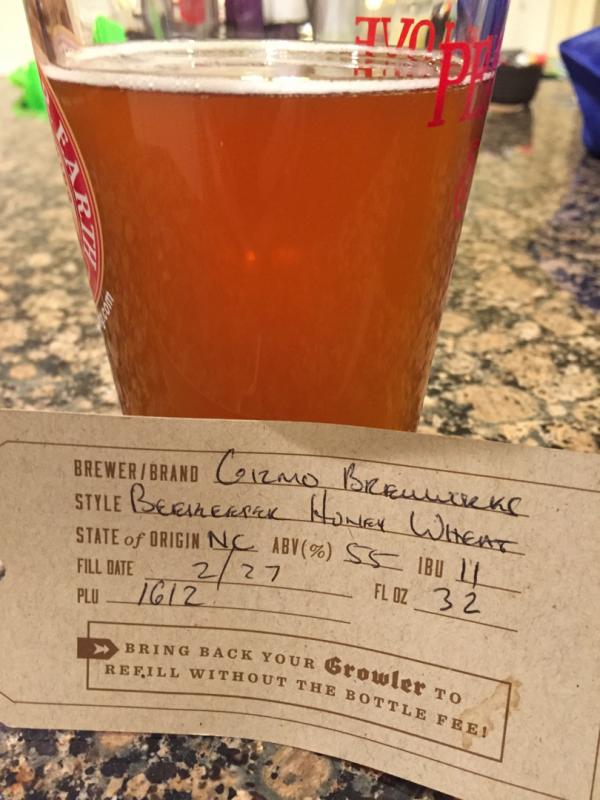 EARTH
BREWER/BRAND Gizmo Brewwerks
STYLE Beekeeper Honey Wheat
STATE of ORIGIN NC ABV(%) 55 IBU 11
FILL DATE 2/27
PLU 1612 FL OZ 32
BRING BACK YOUR Growler TO
REFILL WITHOUT THE BOTTLE FEE!